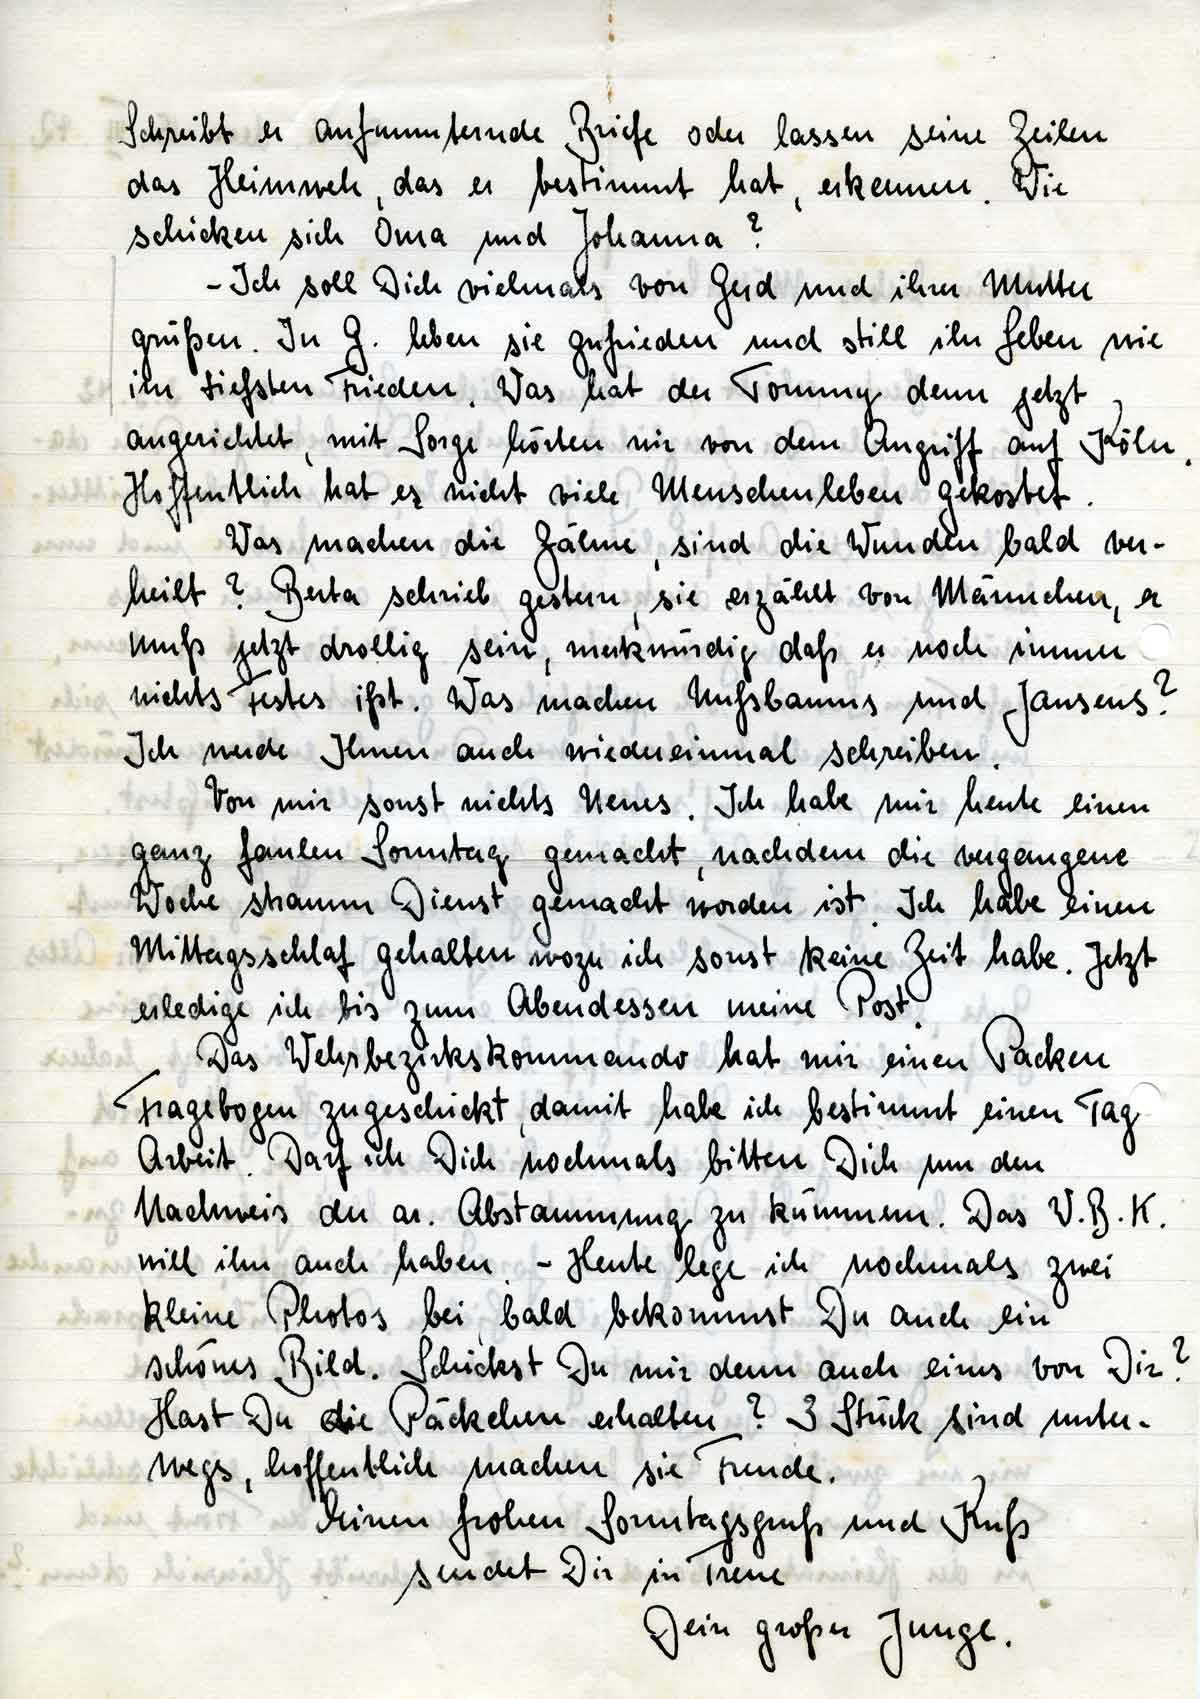 Schreibt er aufmunternde Briefe oder lassen seine Zeilen
das Heimweh, das er bestimmt hat, erkennen. Wie
schicken sich Oma und Johanna?
- Ich soll Dich vielmals von Gerd und ihrer Mutter
grüßen. In G. leben sie zufrieden und still ihr Leben wie
im tiefsten Frieden. Was hat der Tommy denn jetzt
angerichtet, mit Sorge hörten wir von dem Angriff auf Köln.
Hoffentlich hat es nicht viele Menschenleben gekostet.
Was machen die Zähne, sind die Wunden bald ver-
heilt? Berta schrieb gestern, sie erzählt von Männchen, er
muß jetzt drollig sein, merkwürdig daß er noch immer
nichts Festes ißt. Was machen Nußbaums und Jansens?
Ich werde Ihnen auch wiedereinmal schreiben.
Von mir sonst nichts Neues. Ich habe mir heute einen
ganz faulen Sonntag gemacht, nachdem die vergangene
Woche stramm Dienst gemacht worden ist. Ich habe einen
Mittagsschlaf gehalten wozu ich sonst keine Zeit habe. Jetzt
erledige ich bis zum Abendessen meine Post.
Das Wehrbezirkskommando hat mir einen Packen
Fragebogen zugeschickt, damit habe ich bestimmt einen Tag
Arbeit. Darf ich Dich nochmals bitten Dich um den
Nachweis der ar. Abstammung zu kümmern. Das W.B.K.
will ihn auch haben. - Heute lege ich nochmals zwei
kleine Photos bei, bald bekommst Du auch ein
schönes Bild. Schickst Du mir denn auch eines von Dir?
Hast Du die Päckchen erhalten? 3 Stück sind unter-
wegs, hoffentlich machen sie Freude.
Einen frohen Sonntagsgruß und Kuß
sendet Dir in Treue
Dein großer Junge.